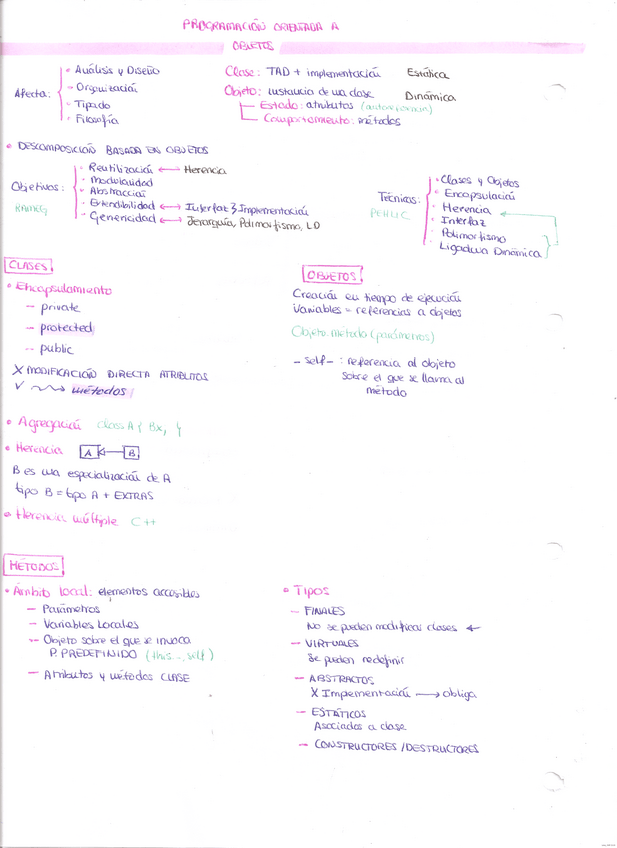 PROGRAMACIÓN ORIENTADA A
OBJETOS
Afecta:
• Análisis y Diseño
- Organización
• Tipado
• Filosofía
Clase: TAD + implementación Estática
Objeto: instancia de una clase Dinámica
Estado: atributos
Comportamiento: métodos
• DESCOMPOSICIÓN BASADA EN OBJETOS
Objetivos:
RAMEG
• Reutilización ⟷ Herencia
• Modularidad
• Abstracción
• Extendibilidad ⟷ Interfaz } Implementación
- Genericidad ⟷ Jerarquía, Polimorfismo, LD
Técnicas:
PEHLIC
• Clases y Objetos
• Encapsulación
• Herencia
• Interfaz
Polimorfismo
Ligadura Dinámica
CLASES
• Encapsulamiento
-- private
-- protected
-- public
X MODIFICACIÓN DIRECTA ATRIBUTOS
✓ métodos
• Agregación class A { Bx; }
• Herencia A B
B es una especialización de A
tipo B = tipo A + EXTRAS
• Herencia múltiple C++
OBJETOS
Creación en tiempo de ejecución
Variables = referencias a objetos
Objeto.método(parámetros)
- self - : referencia al objeto
sobre el que se llama al
método
MÉTODOS
• Ámbito local: elementos accesibles
- Parámetros
- Variables Locales
- Objeto sobre el que se invoca
P. PREDEFINIDO (this -, self)
- Atributos y métodos CLASE
• TIPOS
- FINALES
No se pueden modificar clases ←
- VIRTUALES
Se pueden redefinir
- ABSTRACTOS
X Impementación → obliga
- ESTÁTICOS
Asociados a clase
- CONSTRUCTORES / DESTRUCTORES